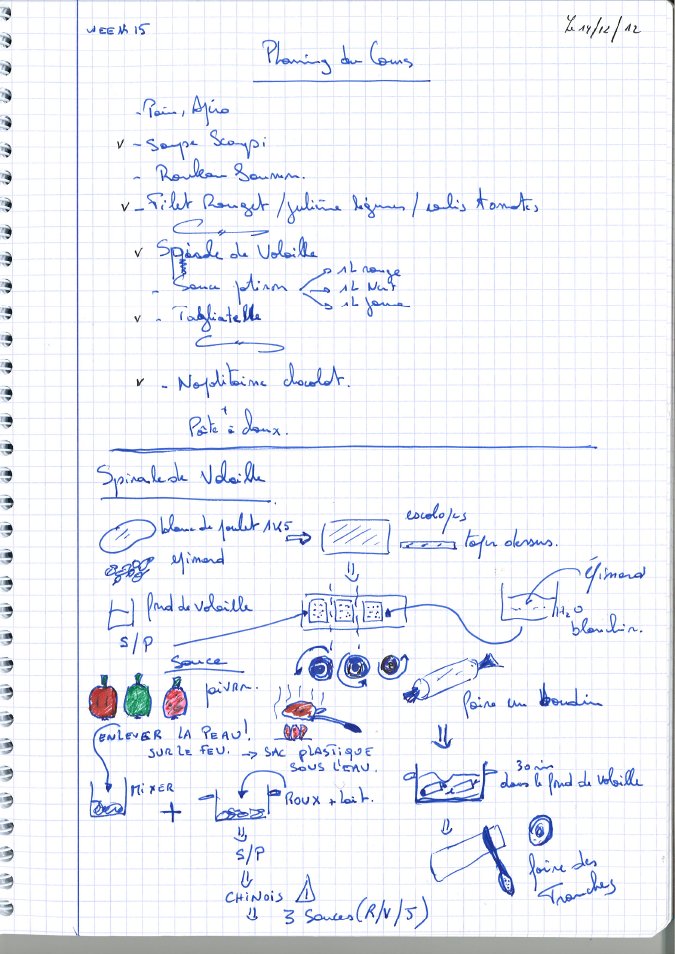 WEEK 15
Le 14/12/12
Planning du Cours
- Pain, Apéro
v - Soupe Scampi
- Rouleau Saumon.
v - Filet Rouget / julienne légumes / coulis tomates
v Spirale de Volaille
- Sauce poivron → 1L rouge
→ 1L Vert
→ 1L jaune
v - Tagliatelle
v - Napolitaine chocolat.
+
Pâte à choux.
Spirale de Volaille
blanc de poulet 1K5
escalopes
taper dessus.
épinard
fond de volaille
S/P
Épinard
H2O
blanchir.
Sauce
poivron.
faire un boudin
ENLEVER LA PEAU!
SUR LE FEU. → SAC PLASTIQUE
SOUS L'EAU.
MIXER
+
ROUX + lait.
30 min
dans le fond de volaille
S/P
CHINOIS
3 Sauces (R/V/J)
faire des
Tranches